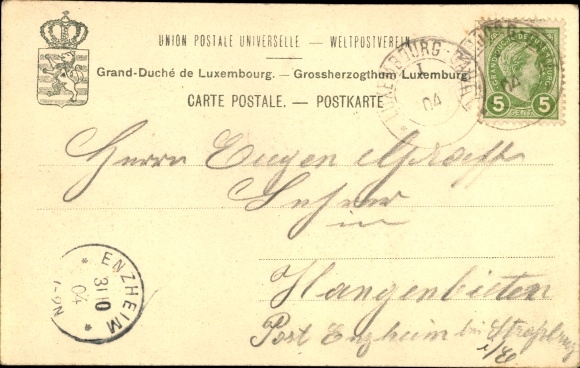 UNION POSTALE UNIVERSELLE — WELTPOSTVEREIN
Grand-Duché de Luxembourg. — Grossherzogthum Luxemburg.
CARTE POSTALE. — POSTKARTE
LUXEMBOURG-GARE
04
GRAND-DUCHÉ DE LUXEMBOURG
5 CENT. 5
Herrn Eugen
Lehrer
in
Hangenbieten
Post Enzheim bei Straßburg
i/E
* ENZHEIM *
31 10
04
1-2N